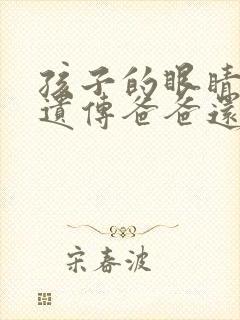 孩子的眼睛
遺傳爸爸還
宋春波